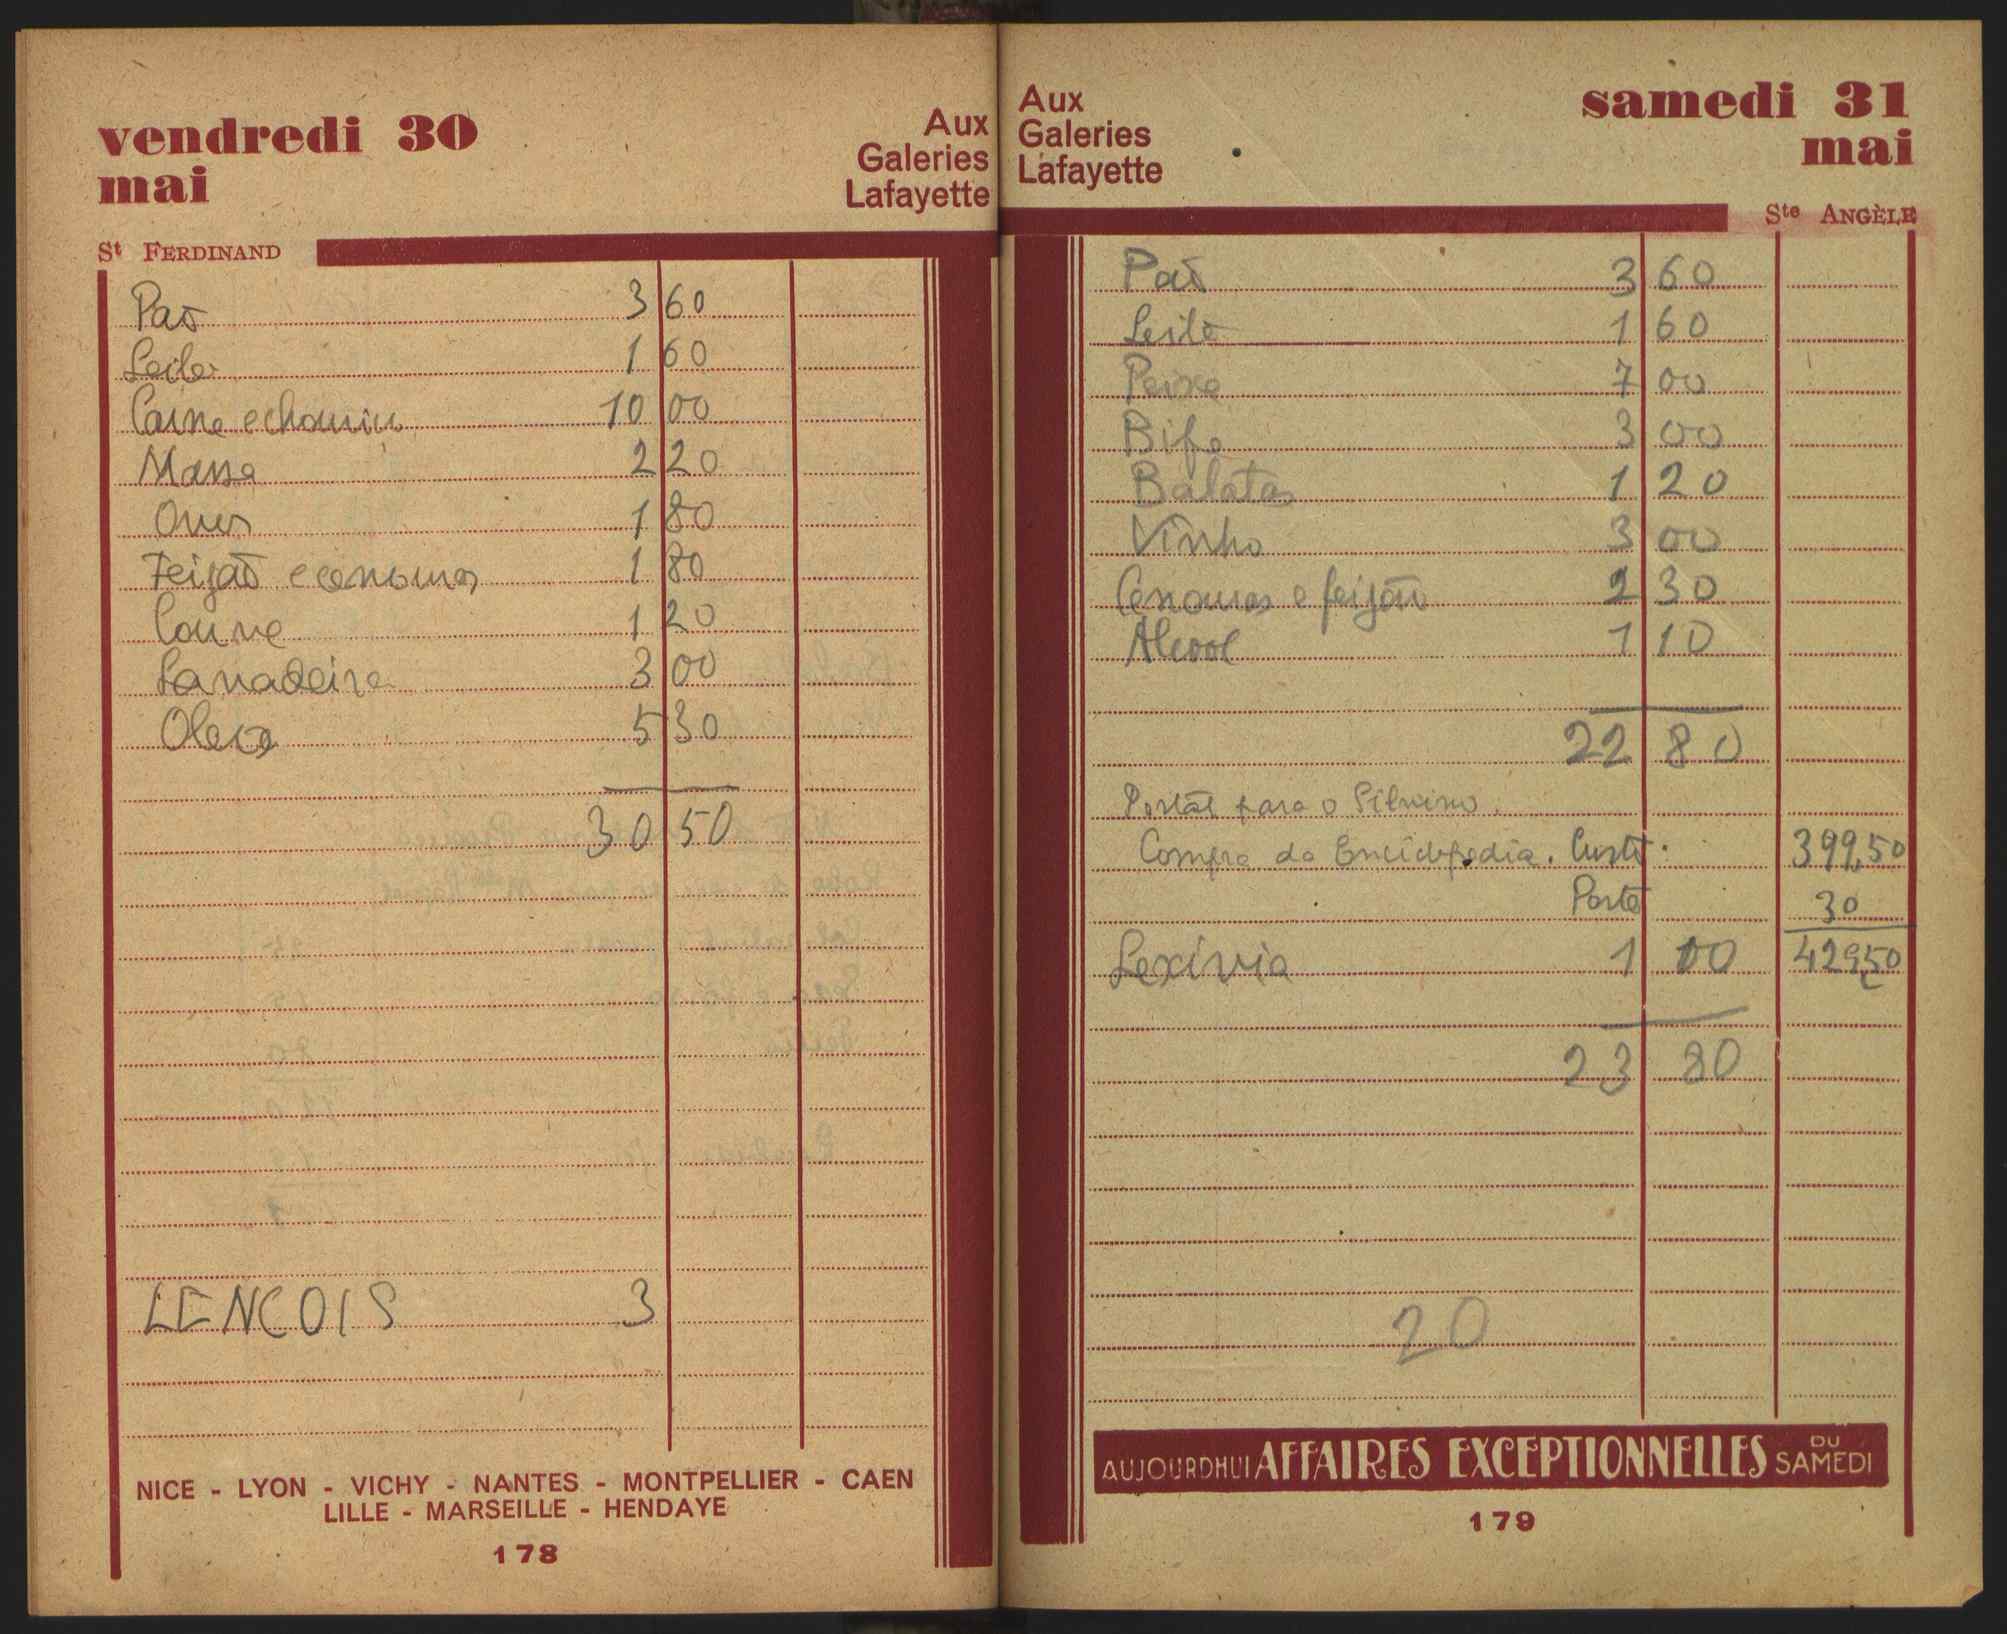 vendredi 30
mai
Aux
Galeries
Lafayette
St FERDINAND
Pão 3 60
Leite 1 60
Carne e chouriço 10 00
Massa 2 20
Ovos 1 80
Feijão e cenouras 1 80
Couve 1 20
Lavadeira 3 00
Oleo 5 30
30 50
LENCOIS 3
NICE - LYON - VICHY - NANTES - MONTPELLIER - CAEN
LILLE - MARSEILLE - HENDAYE
178
Aux
Galeries
Lafayette
samedi 31
mai
Ste ANGÈLE
Pão 3 60
Leite 1 60
Peixe 7 00
Bife 3 00
Batatas 1 20
Vinho 3 00
Cenouras e feijão 2 30
Alcool 1 10
22 80
Postal para o Silvino.
Compra da Enciclopedia. Custo. 399,50
Porte 30
Lexivia 1 00 429,50
23 80
20
AUJOURDHUI AFFAIRES EXCEPTIONNELLES DU SAMEDI
179